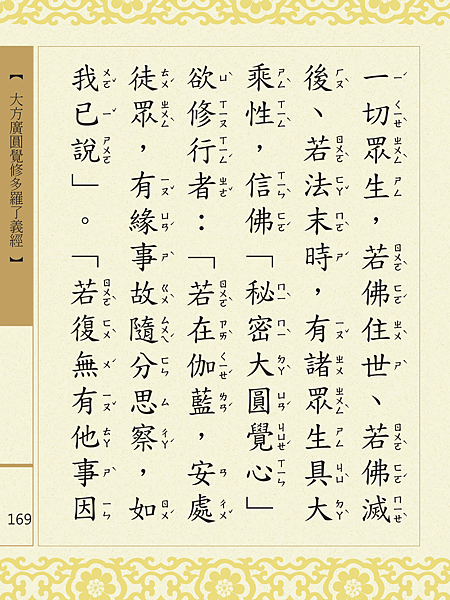 一切眾生，若佛住世、若佛滅
後、若法末時，有諸眾生具大
乘性，信佛「秘密大圓覺心」
欲修行者：「若在伽藍，安處
徒眾，有緣事故隨分思察，如
我已說」。「若復無有他事因
【 大方廣圓覺修多羅了義經 】
169